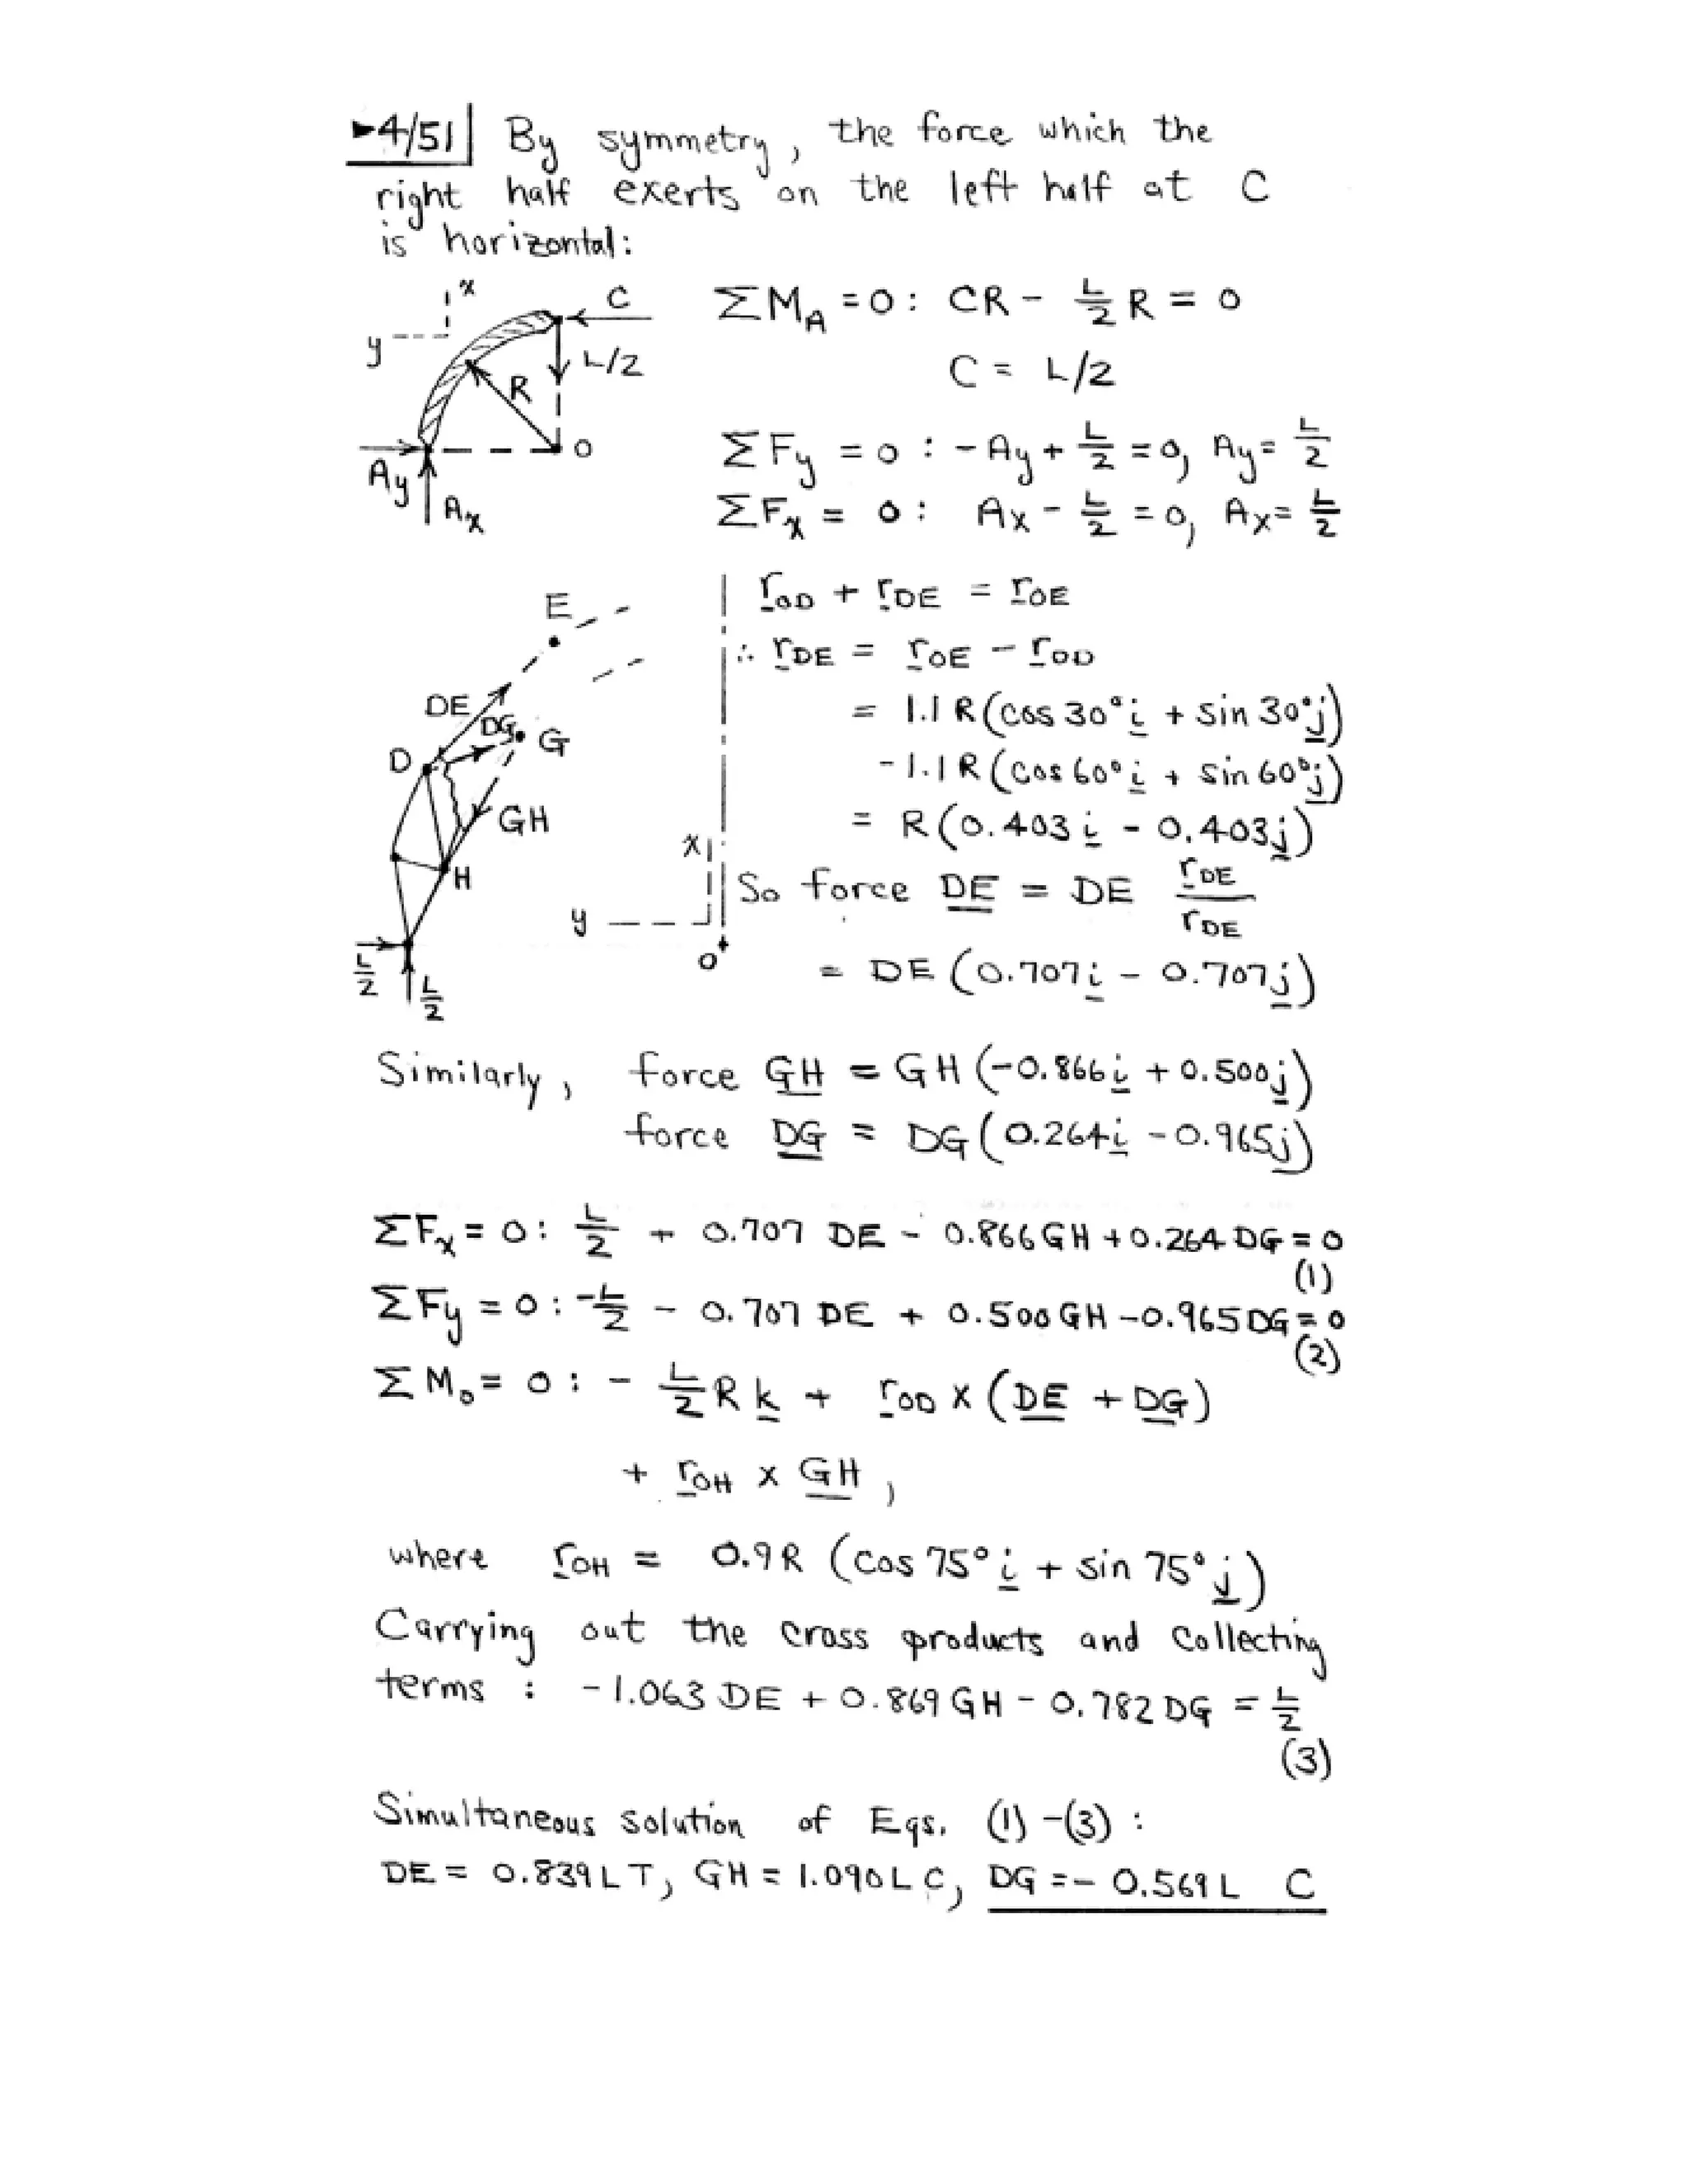 ►4/51 By symmetry, the force which the
right half exerts on the left half at C
is horizontal:
x
y
C
L/2
R
O
Ay
Ax
ΣM_A = 0: CR - L/2 R = 0
C = L/2
ΣFy = 0: -Ay + L/2 = 0, Ay = L/2
ΣFx = 0: Ax - L/2 = 0, Ax = L/2
E
DE
DG
G
D
GH
H
x
y
O
L/2
L/2
r_OD + r_DE = r_OE
∴ r_DE = r_OE - r_OD
= 1.1 R (cos 30° i + sin 30° j)
- 1.1 R (cos 60° i + sin 60° j)
= R (0.403 i - 0.403 j)
So force DE = DE r_DE / r_DE
= DE (0.707 i - 0.707 j)
Similarly, force GH = GH (-0.866 i + 0.500 j)
force DG = DG (0.264 i - 0.965 j)
ΣFx = 0: L/2 + 0.707 DE - 0.866 GH + 0.264 DG = 0
(1)
ΣFy = 0: -L/2 - 0.707 DE + 0.500 GH - 0.965 DG = 0
(2)
ΣM_o = 0: - L/2 R k + r_OD x (DE + DG)
+ r_OH x GH,
where r_OH = 0.9R (cos 75° i + sin 75° j)
Carrying out the cross products and collecting
terms: -1.063 DE + 0.869 GH - 0.782 DG = L/2
(3)
Simultaneous solution of Eqs. (1)-(3):
DE = 0.839 L T, GH = 1.090 L C, DG = -0.569 L C